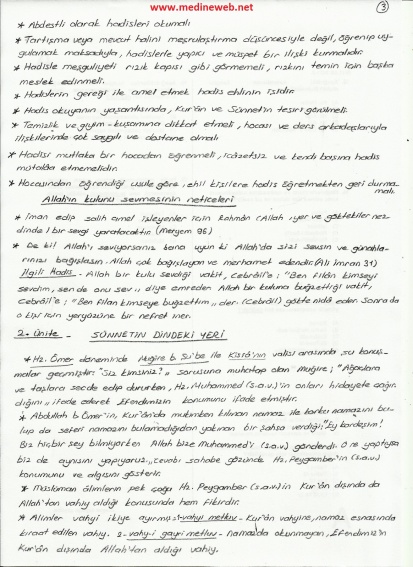 www.medineweb.net
3
* Abdestli olarak hadisleri okumalı
* Tartışma veya mevcut halini meşrulaştırma düşüncesiyle değil, öğrenip uy-
gulamak maksadıyla, hadislerle yapıcı ve müspet bir ilişki kurmalıdır.
* Hadisle meşguliyeti rızık kapısı gibi görmemeli, rızkını temin için başka
meslek edinmeli.
* Hadislerin gereği ile amel etmek hadis ehlinin işidir.
* Hadis okuyanın yaşantısında, Kur'ân ve Sünnet'in tesiri görülmeli.
* Temizlik ve giyim-kuşamına dikkat etmeli, hocası ve ders arkadaşlarıyla
ilişkilerinde çok saygılı ve dostane olmalı
* Hadisi mutlaka bir hocadan öğrenmeli, icazetsiz ve kendi başına hadis
mütalâa etmemelidir.
* Hocasından öğrendiği usule göre, ehil kişilere hadis öğretmekten geri durma-
malı.
Allah'ın kulunu sevmesinin neticeleri
* İman edip salih amel işleyenler için Rahmân (Allah, yer ve göktekiler nez
dinde) bir sevgi yaratacaktır. (Meryem 96)
* De ki! Allah'ı seviyorsanız bana uyun ki Allah'da sizi sevsin ve günahla-
rınızı bağışlasın. Allah çok bağışlayan ve merhamet edendir. (Ali İmran 31)
İlgili Hadis - Allah bir kulu sevdiği vakit, Cebrâil'e; "Ben filân kimseyi
sevdim, sen de onu sev" diye emreden Allah bir kuluna buğzettiği vakit,
Cebrâil'e; "Ben filan kimseye buğzettim" der. (Cebrâil) gökte nidâ eder. Sonra da
o kişi için yeryüzüne bir nefret iner.
2. Ünite - SÜNNETİN DİNDEKİ YERİ
* Hz. Ömer döneminde Muğire b. Şu'be ile Kisrâ'nın valisi arasında şu konuş-
malar geçmiştir: "Siz kimsiniz?" sorusuna muhatap olan Muğire; "Ağaçlara
ve taşlara secde edip dururken, Hz. Muhammed (s.a.v.)'in onları hidayete çağır
dığını" ifade ederek Efendimizin konumunu ifade etmiştir.
* Abdullah b Ömer'in, Kur'ân'da mukimken kılınan namaz ile korku namazını bu-
lup da seferî namazını bulamadığından yakınan bir şahsa verdiği; "Ey kardeşim!
Biz hiç bir şey bilmiyorken Allah bize Muhammed'i (s.a.v.) gönderdi. O ne yaptıysa
biz de aynısını yapıyoruz." cevabı sahabe gözünde Hz. Peygamber'in (s.a.v.)
konumunu ve algısını gösterir.
* Müslüman âlimlerin pek çoğu Hz. Peygamber (s.a.v)in Kur'ân dışında da
Allah'tan vahiy aldığı konusunda hem fikirdir.
* Alimler vahyi ikiye ayırmış vahyi metluv - Kur'ân vahyine, namaz esnasında
kıraat edilen vahiy. vahy-i gayri metluv - namazda okunmayan, Efendimiz'in
Kur'ân dışında Allah'tan aldığı vahiy.